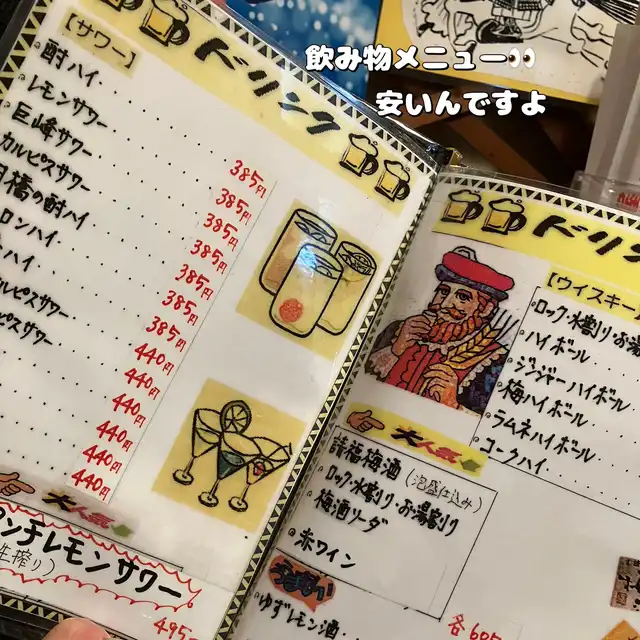 飲み物メニュー👀
安いんですよ
ドリンク
【サワー】
・酎ハイ
385円
・レモンサワー
385円
・巨峰サワー
385円
カルピスサワー
385円
の酎ハイ
385円
ロンハイ
385円
ハイ
385円
ルピスサワー
440円
ピスサワー
440円
440円
440円
440円
440円
大人気
ンチレモンサワー
(生搾り)
495円
ドリン
【ウイスキー
・ロック・水割り・お湯
・ハイボール
・ジンジャーハイボール
・梅ハイボール
・ラムネハイボール
・コークハイ
大人気
請福梅酒(泡盛仕込み)
・ロック・水割り・お湯割り
・梅酒ソーダ
・赤ワイン
・ゆずレモン酒
各605